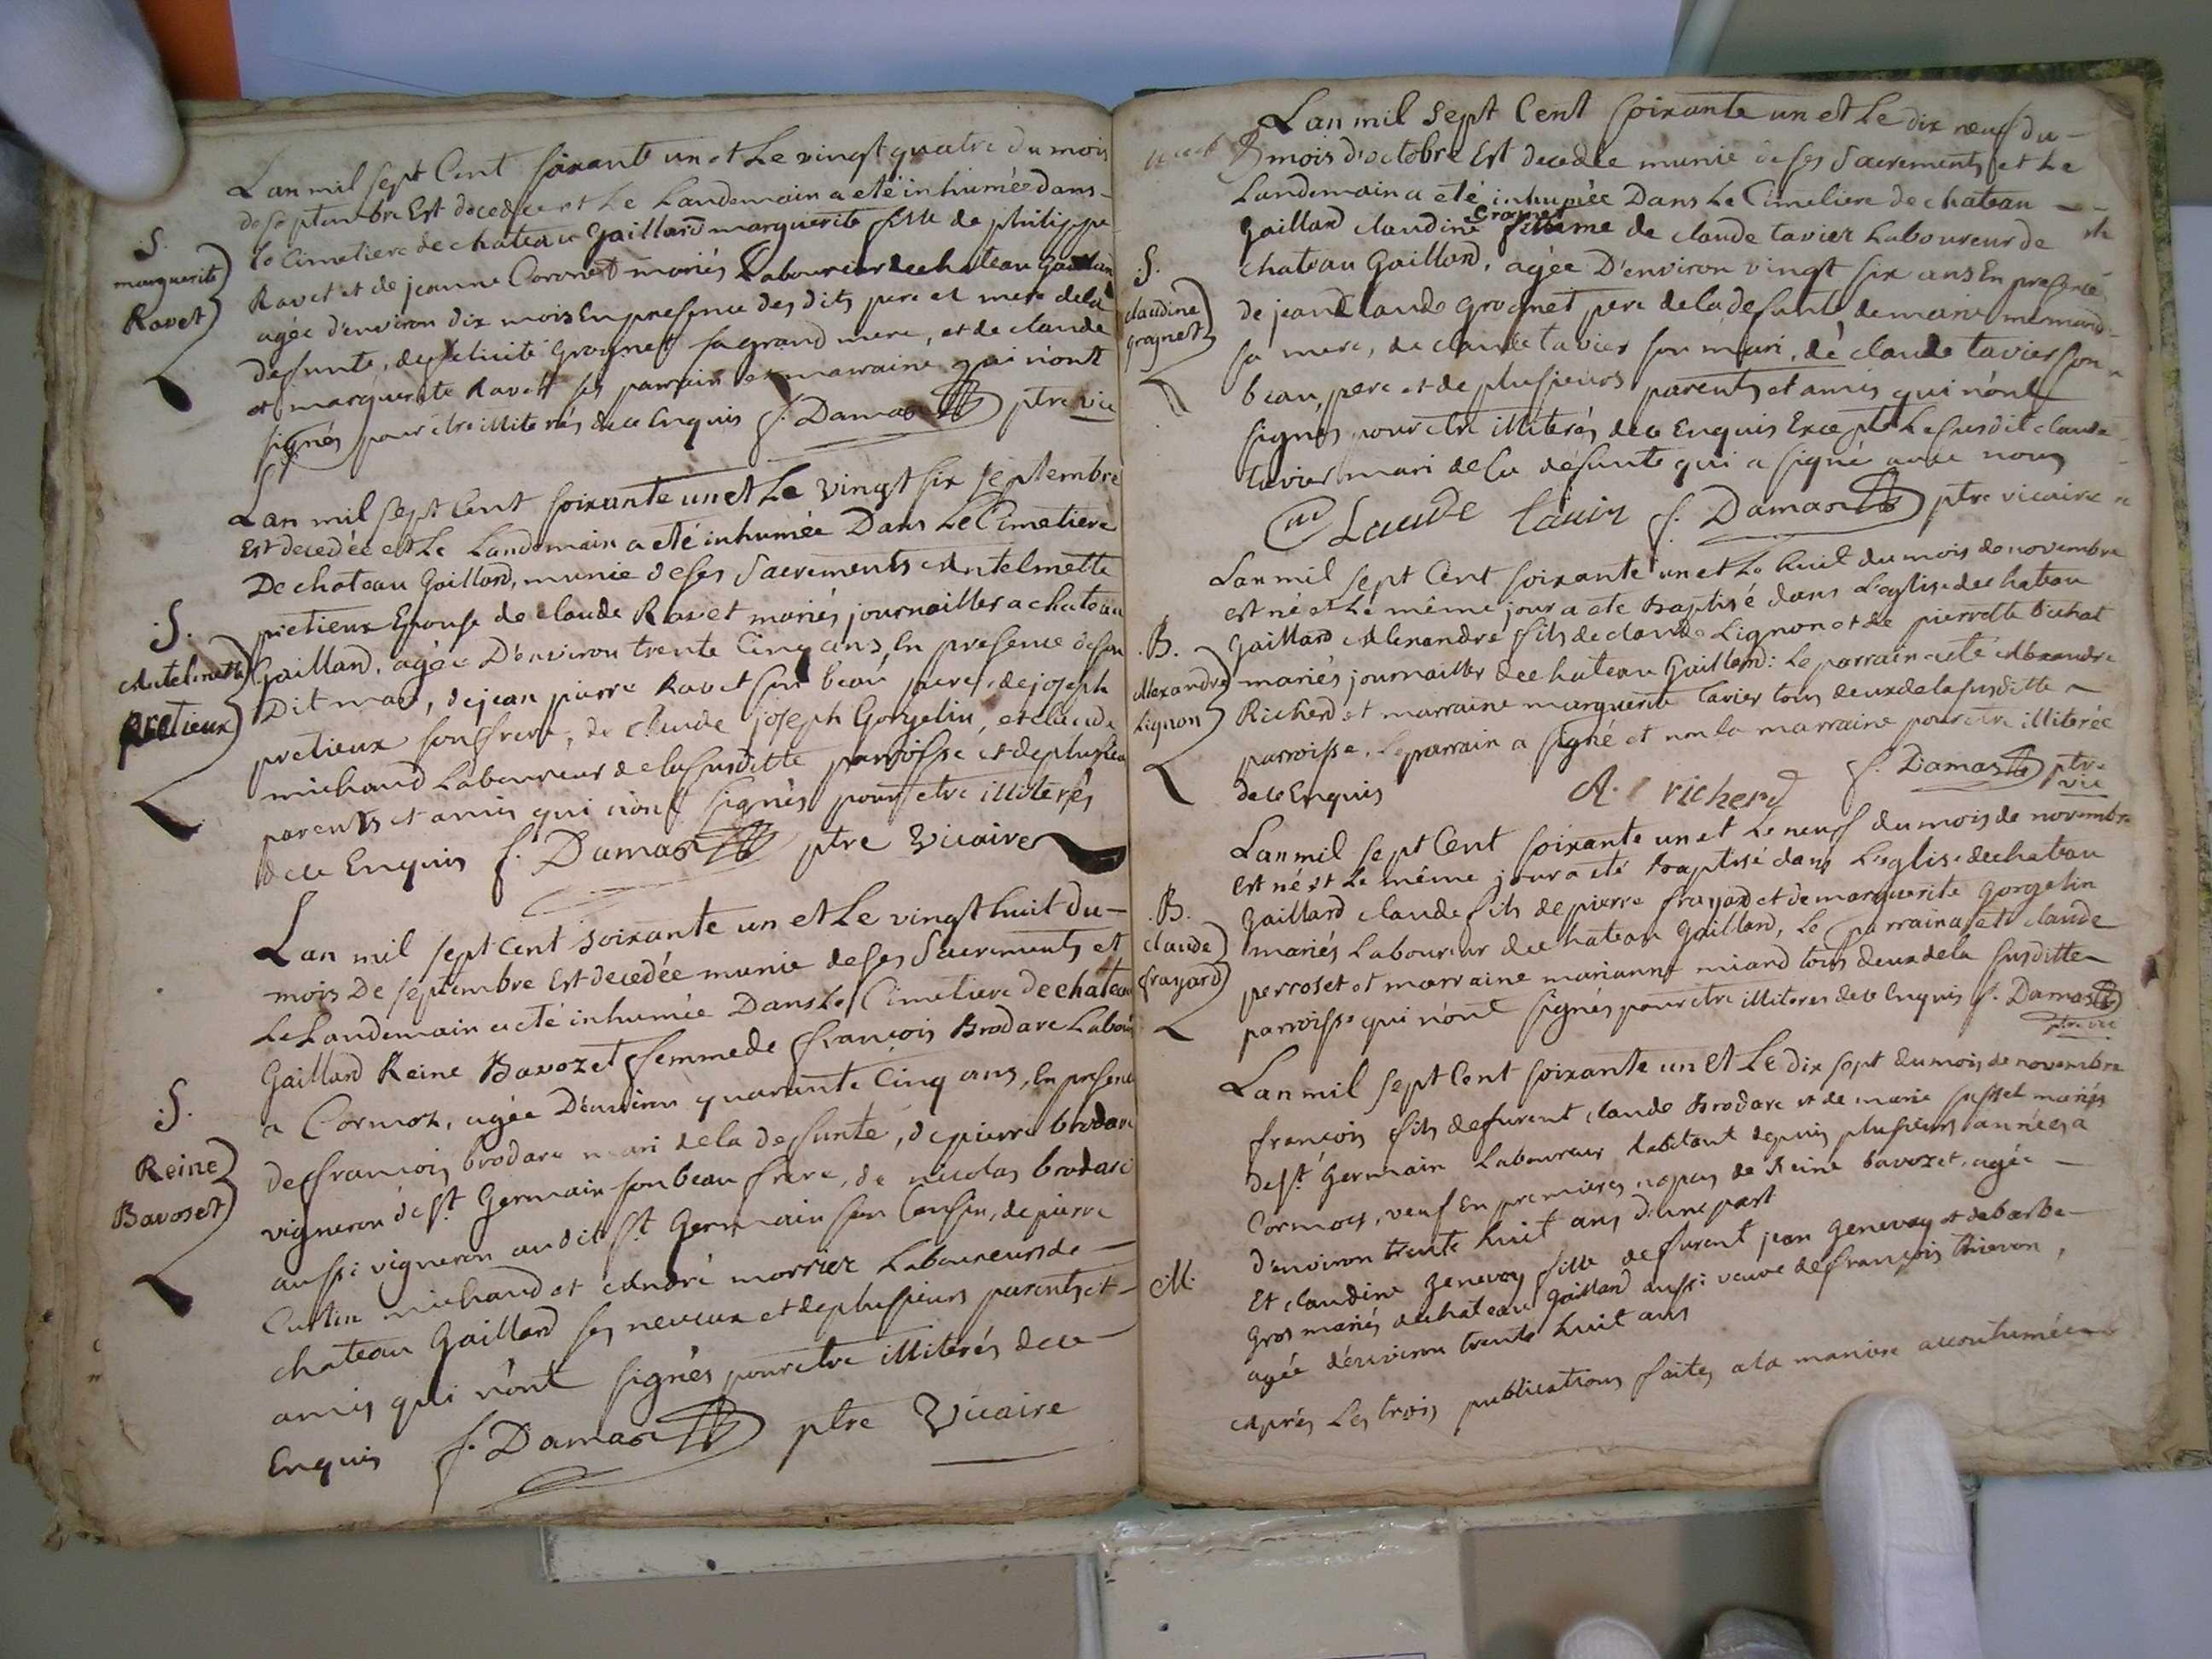 Lan mil sept Cent soixante un et Le vingt quatre du mois
de septembre Est decedée et Le Landemain a eté inhumée dans
le Cimetiere de chateau Gaillard marguerite fille de philippe
S.
marguerite
Ravet
Ravet et de jeanne Coronet mariés Laboureur de chateau Gaillard
agée d'environ dix mois En presence des dits pere et mere de la
defunte, de felicité Grognet sa grand mere, et de claude
et marguerite Ravet ses parrain et marraine qui n'ont
signés pour etre illiterés de ce Enquis f. Damas ptre vic
Lan mil sept Cent soixante un et Le vingt six septembre
Est decedée et Le Landemain a eté inhumée Dans Le Cimetiere
De chateau Gaillard, munie de ses Sacrements Antelmette
S.
Antelmette
pretieux
pretieux Epouse de claude Ravet mariés journailler a chateau
Gaillard, agée D'environ trente Cinq ans, En presence de son
Dit mari, de jean pierre Ravet son beau pere, de joseph
pretieux son frere, de claude joseph Gorgelin, et claude
michaud Laboureur de la susditte parroisse et de plusieu
parents et amis qui n'ont signés pour etre illiterés
de ce Enquis f. Damas ptre Vicaire
Lan mil sept cent soixante un et Le vingt huit du
mois De septembre Est decedée munie de ses Sacrements et
Le Landemain a eté inhumée Dans Le Cimetiere de chateau
Gaillard Reine Bavozet femme de françois Brodare Labour
S.
Reine
Bavoset
a Cormoz, agée D'environ quarante Cinq ans, En presence
de françois brodare mari de la defunte, de pierre brodare
vigneron de St Germain son beau frere, de nicolas brodare
aussi vigneron audit St Germain son Cousin, de pierre
michaud et André morrier Laboureurs de
chateau Gaillard ses neveux et de plusieurs parents et
amis qui n'ont signés pour etre illiterés de ce
Enquis f. Damas ptre Vicaire
Lan mil sept Cent soixante un et Le dix neuf du
mois d'octobre Est decedée munie de ses Sacrements et Le
Landemain a eté inhumée Dans Le Cimetiere de chateau
Gaillard claudine Grognet femme de claude tavier Laboureur de
S.
claudine
grognet
chateau Gaillard, agée D'environ vingt six ans En presence
de jean Claude grognet pere de la defunte de marie
sa mere, de claude tavier son mari, de claude tavier son
beau pere et de plusieurs parents et amis qui n'ont
signés pour etre illiterés de ce Enquis Excepté Le susdit claude
tavier mari de la defunte qui a signé avec nous
Claude tavier f. Damas ptre vicaire
Lan mil sept Cent soixante un et Le huit du mois de novembre
est né et Le même jour a eté Baptisé dans L'eglise de chateau
B.
Alexandre
Lignon
Gaillard Alexandre fils de claude Lignon et de pierrette Buhat
mariés journailler de chateau Gaillard: Le parrain a eté Alexandre
Richerd et marraine marguerite tavier tous deux de la susditte
parroisse. Le parrain a signé et non la marraine pour etre illiterée
de ce Enquis A. richerd f. Damas ptre
vic
Lan mil sept Cent soixante un et Le neuf du mois de novembre
est né et Le même jour a eté baptisé dans L'eglise de chateau
B.
claude
frayard
Gaillard claude fils de pierre frayard et de marguerite gorgelin
mariés Laboureur de chateau Gaillard, Le parrain a eté claude
perroset et marraine marianne miand tous deux de la susditte
parroisse qui n'ont signés pour etre illiteres de ce Enquis f. Damas
ptre vic
Lan mil sept Cent soixante un et Le dix sept du mois de novembre
françois fils de furent claude Brodare et de marie mariés
de St Germain Laboureur habitant depuis plusieurs années a
Cormoz, veuf En premieres nopces de Reine bavozet, agée
d'environ trente huit ans d'une part
M.
Et claudine genevay fille de furent jean genevay et de barbe
Gros mariés de chateau Gaillard aussi veuve de françois thievon,
agée d'environ trente huit ans
Aprés Les trois publications faites a la maniere accoutumée